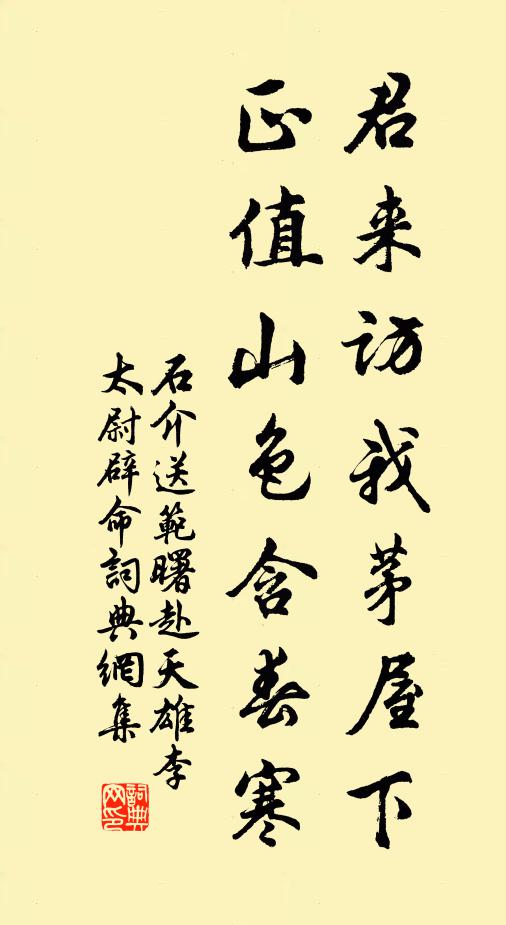 君来访我茅屋下
正值山色含春寒
石介送範曙赴天雄李
太尉辟命詞典網集
詞典
网印